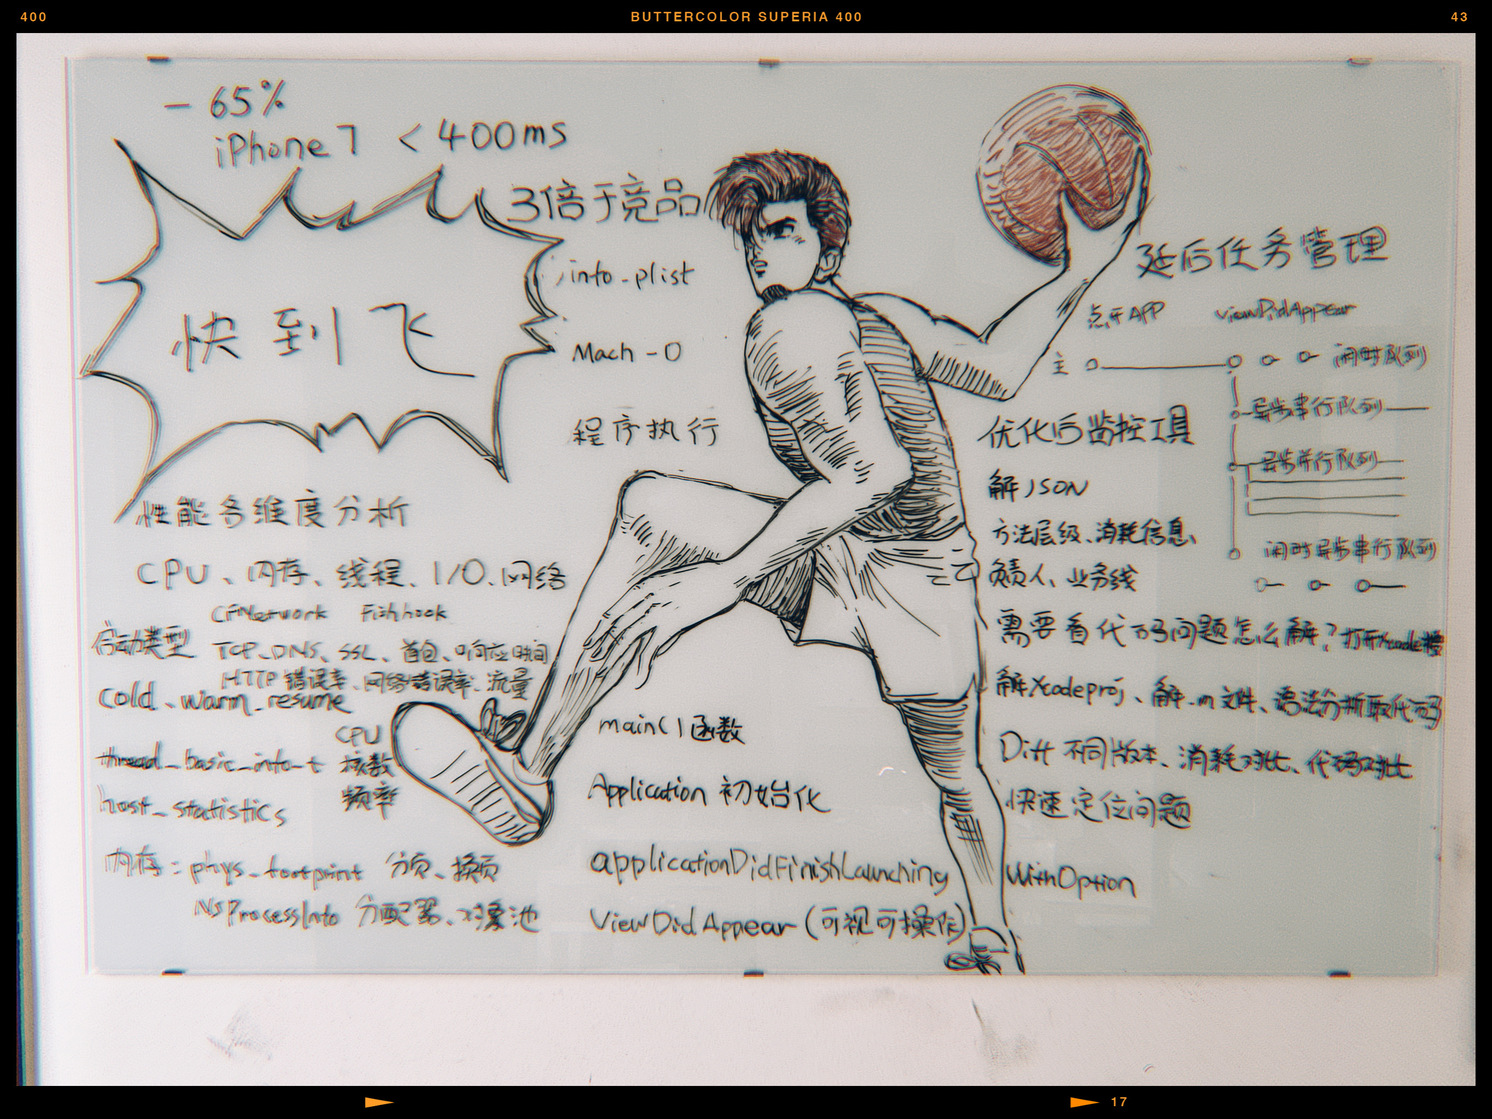 400
BUTTERCOLOR SUPERIA 400
43
- 65%
iPhone 7 < 400ms
3倍于竞品
快到飞
info_plist
Mach-O
程序执行
性能各维度分析
CPU、内存、线程、I/O、网络
CFNetwork Fishhook
启动类型 TCP、DNS、SSL、首包、响应时间
HTTP错误率、网络错误率、流量
cold、warm、resume
CPU
thread_basic_info_t 核数
host_statistics 频率
内存：phys_footprint 分页、换页
NSProcessInfo 分配器、对象池
main()函数
Application 初始化
applicationDidFinishLaunching WithOption
ViewDidAppear (可视可操作)
延后任务管理
点开APP viewDidAppear
主 闲时队列
异步串行队列
异步并行队列
闲时异步串行队列
优化后监控工具
解JSON
方法层级、消耗信息、
负责人、业务线
需要看代码问题怎么解？打开Xcode
解Xcodeproj、解.m文件、语法分析取代码
Diff 不同版本、消耗对比、代码对比
快速定位问题
17